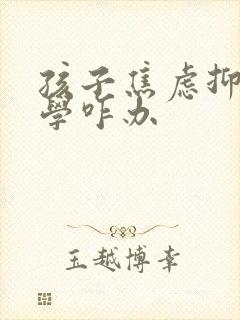 孩子焦虑抑
学咋办
玉越博幸